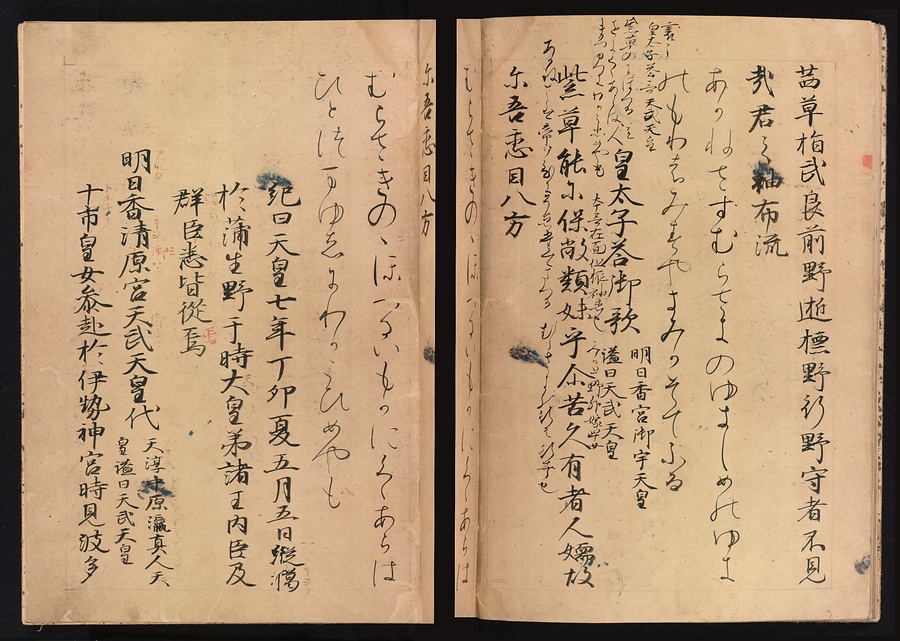 茜草指武良前野逝標野行野守者不見
哉君之袖布流
あかねさすむらさきのゆきしめのゆき
のもりはみすやきみかそてふる
皇太子答御歌
明日香宮御宇天皇
謚曰天武天皇
紫草能尓保敝類妹乎尓苦久有者人嬬故
尓吾恋目八方
むらさきのゝにほへるいもかにくゝあらは
ひとつまゆゑにわれこひめやも
紀曰天皇七年丁卯夏五月五日縦獦
於蒲生野于時大皇弟諸王内臣及
群臣悉皆從焉
明日香清原宮天武天皇代
天渟中原瀛真人天
皇謚曰天武天皇
十市皇女参赴於伊勢神宮時見波多